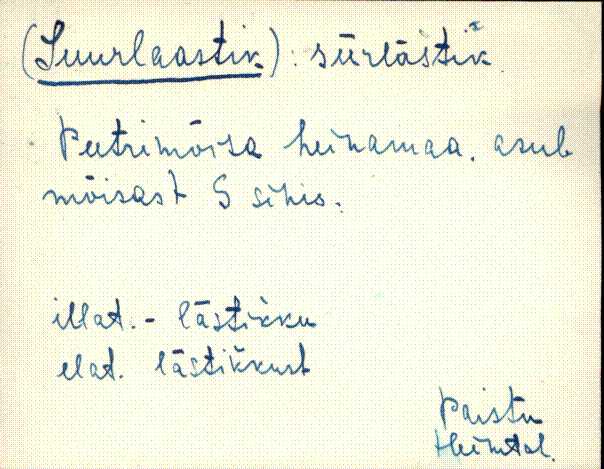 (Suurlaastik): sūrlāstik
Peetrimõisa heinamaa, asub
mõisast S sihis.
illat. - lāstikku
elat. lāstikkust
Paistu
Heimtal.